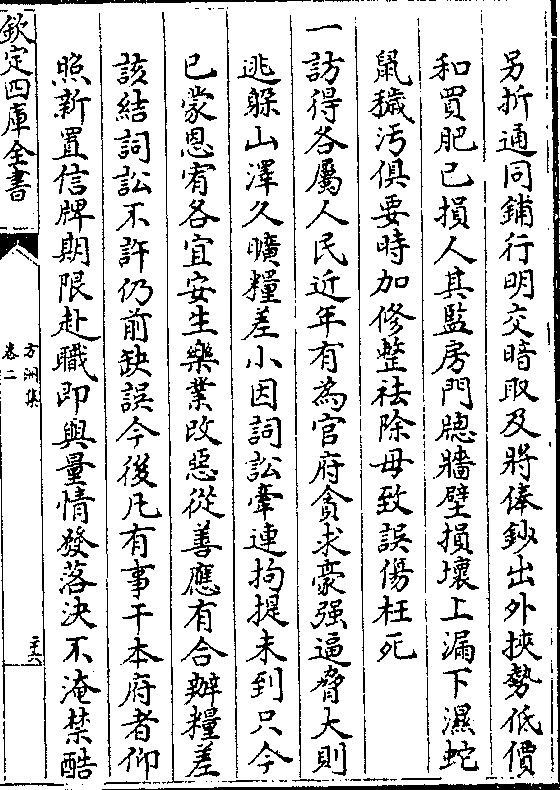 另折通同鋪行明交暗取及將俸鈔出外挾勢低價
和買肥已損人其監房門牕牆壁損壞上漏下濕蛇
鼠穢汚俱要時加修整袪除毋致誤傷枉死
一訪得各屬人民近年有為官府貪求豪强逼脅大則
逃躱山澤久曠糧差小因詞訟牽連拘提未到只今
已蒙恩宥各宜安生樂業改惡從善應有合辦糧差
該結詞訟不許仍前缺誤今後凡有事干本府者仰
照新置信牌期限赴職即與量情發落決不淹禁酷
欽定四庫全書
方洲集
卷二
二十六